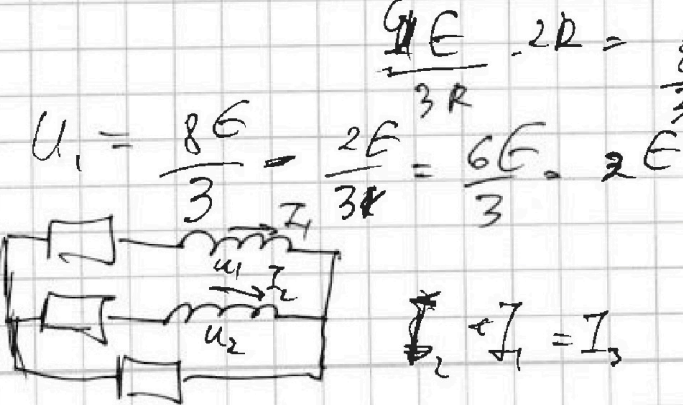 4E/3R · 2R = 8/3
U₁ = 8E/3 - 2E/3 = 6E/3 = 2E
I₁
u₁ I₂
u₂
I₂ + I₁ = I₃